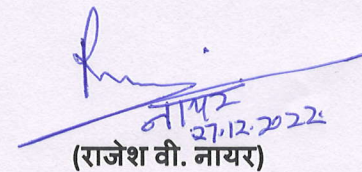 नायर
27.12.2022.
(राजेश वी. नायर)